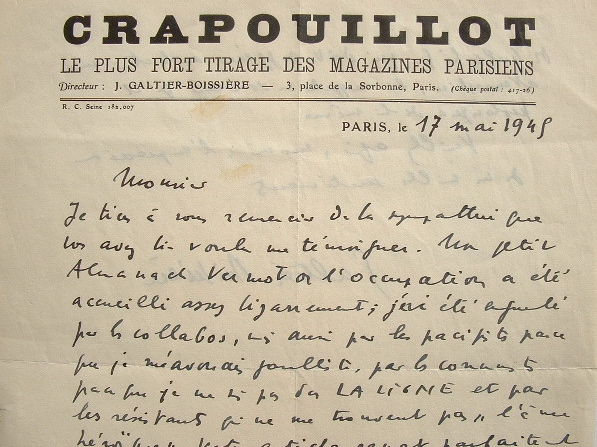 CRAPOUILLOT
LE PLUS FORT TIRAGE DES MAGAZINES PARISIENS
Directeur : J. GALTIER-BOISSIÈRE — 3, place de la Sorbonne, Paris. (Chèque postal : 417-26)
R. C. Seine 182,007
PARIS, le 17 mai 1945
Monsieur
Je tiens à vous remercier de la sympathie que
vos avez bien voulu me témoigner. Mon petit
Almanach Vermot de l'occupation a été
accueilli assez bizarrement ; j'ai été
par les collabos, mais aussi par les pacifistes parce
que je m'avouais gaulliste, par les communistes
parce que je ne suis pas dans LA LIGNE et par
les résistants qui ne me trouvent pas "l'âme